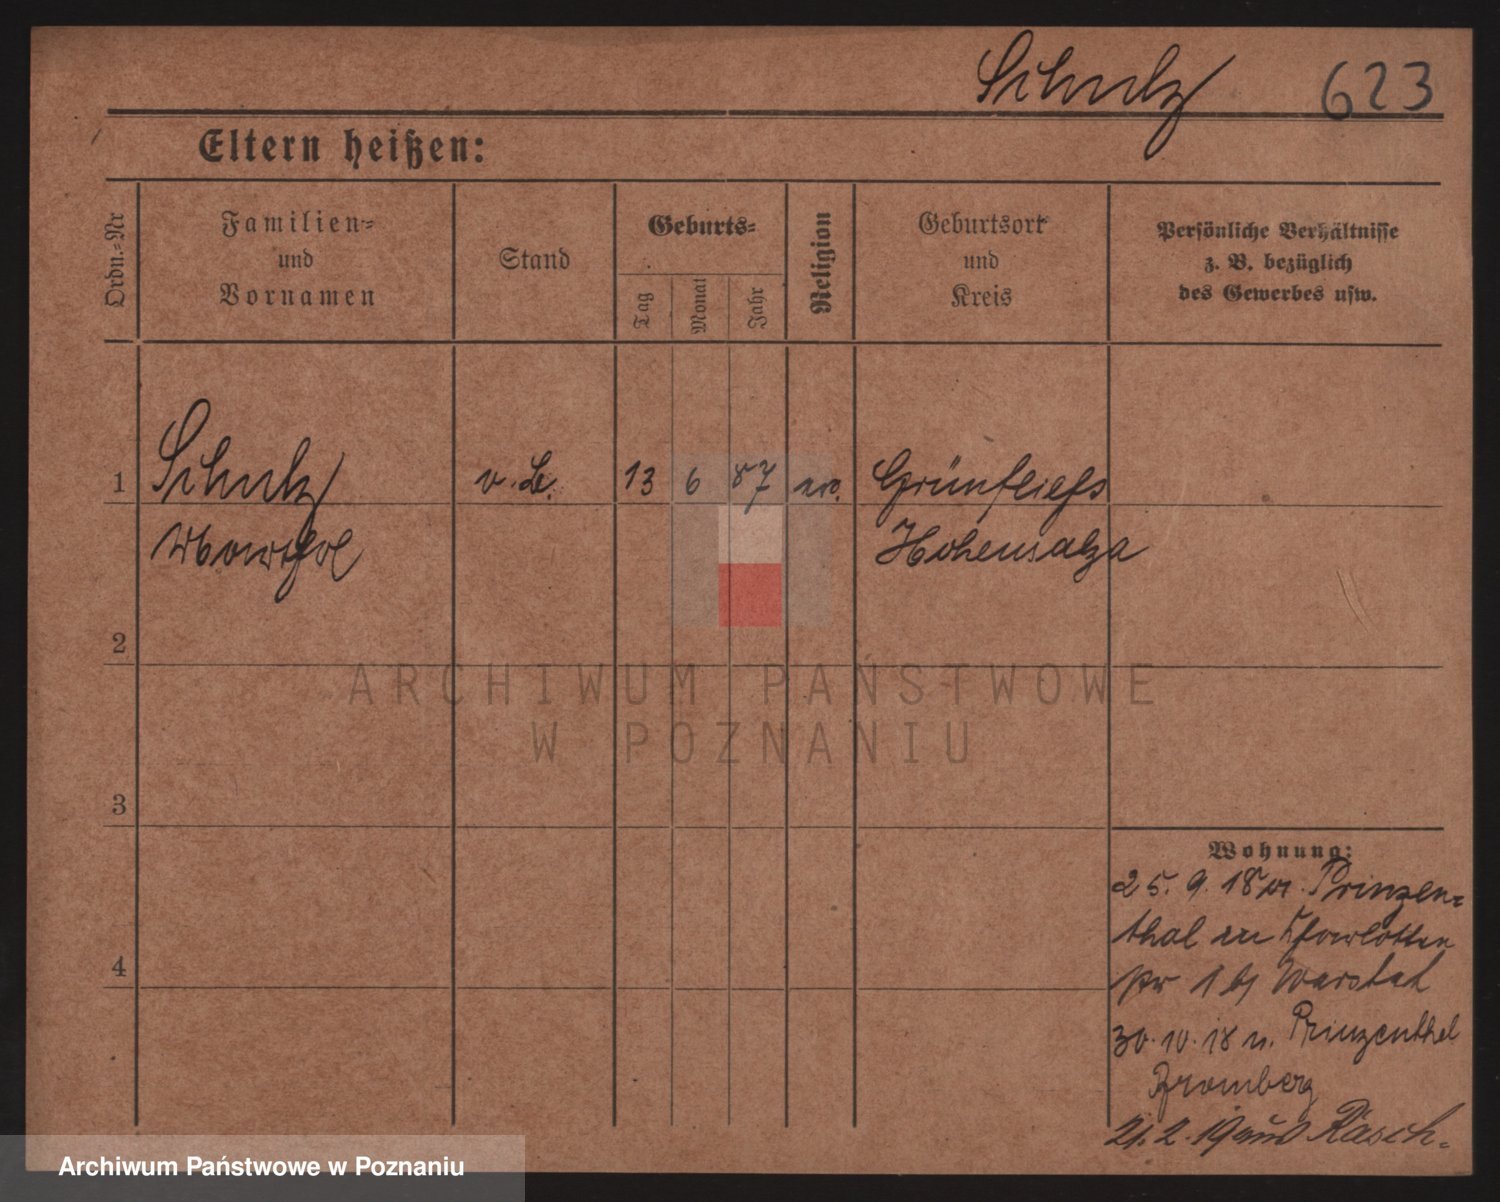 Schulz 623
Eltern heißen:
Ordn.-Nr
Familien-
und
Vornamen
Stand
Geburts-
Tag
Monat
Jahr
Religion
Geburtsort
und
Kreis
Persönliche Verhältnisse
z. B. bezüglich
des Gewerbes usw.
1 Schulz v. 13 6 87 Grünfliess
Hohensalza
2
3
4
Wohnung:
25. 9. 18 Prinzen-
thal Charlotten
1 b/ Warstat
30. 10. 18 n. Prinzenthal
Bromberg
21. 2. 19 aus Rasch-
ARCHIWUM PAŃSTWOWE
W POZNANIU
Archiwum Państwowe w Poznaniu